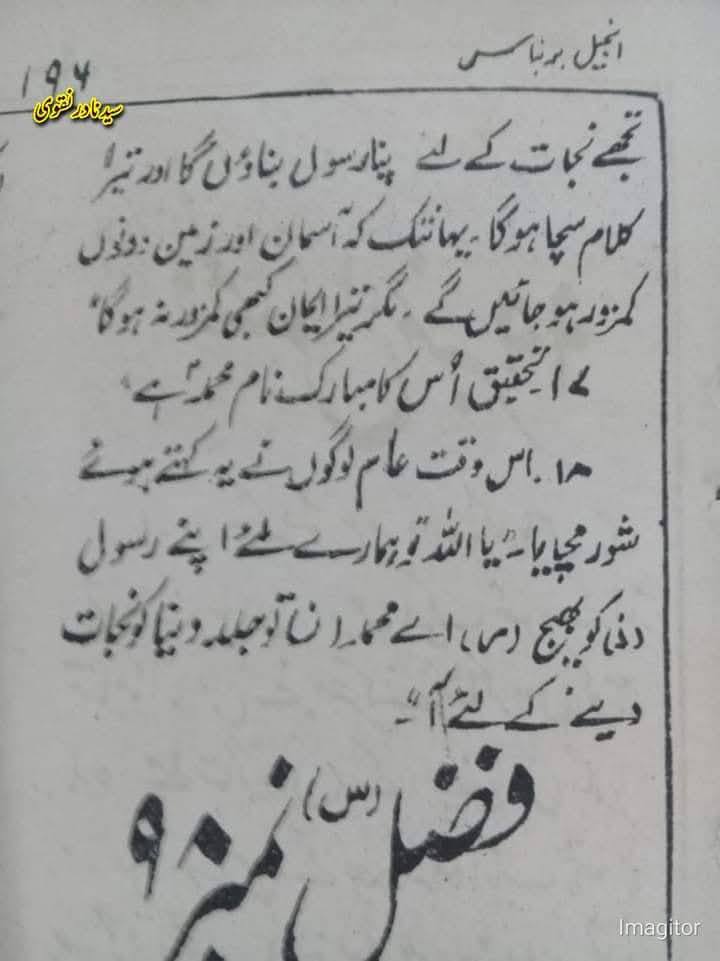 انجیل برنباس
۱۹۶
سید نادر نقوی
تجھے نجات کے لیے پنا رسول بناؤں گا اور تیرا
کلام سچا ہوگا۔ یہانتک کہ آسمان اور زمین دونوں
کمزور ہو جائیں گے۔ مگر تیرا ایمان کبھی کمزور نہ ہوگا"
۱۷۔ تحقیق اُس کا مبارک نام محمدؐ ہے"
۱۸۔ اس وقت عام لوگوں نے یہ کہتے ہوئے
شور مچایا۔ یا اللہ تو ہمارے لئے اپنے رسول
کو بھیج (س) اے محمد (ن) تو جلد دنیا کو نجات
دینے کے لئے آ"۔
فصل (س) نمبر ۹۸
Imagitor